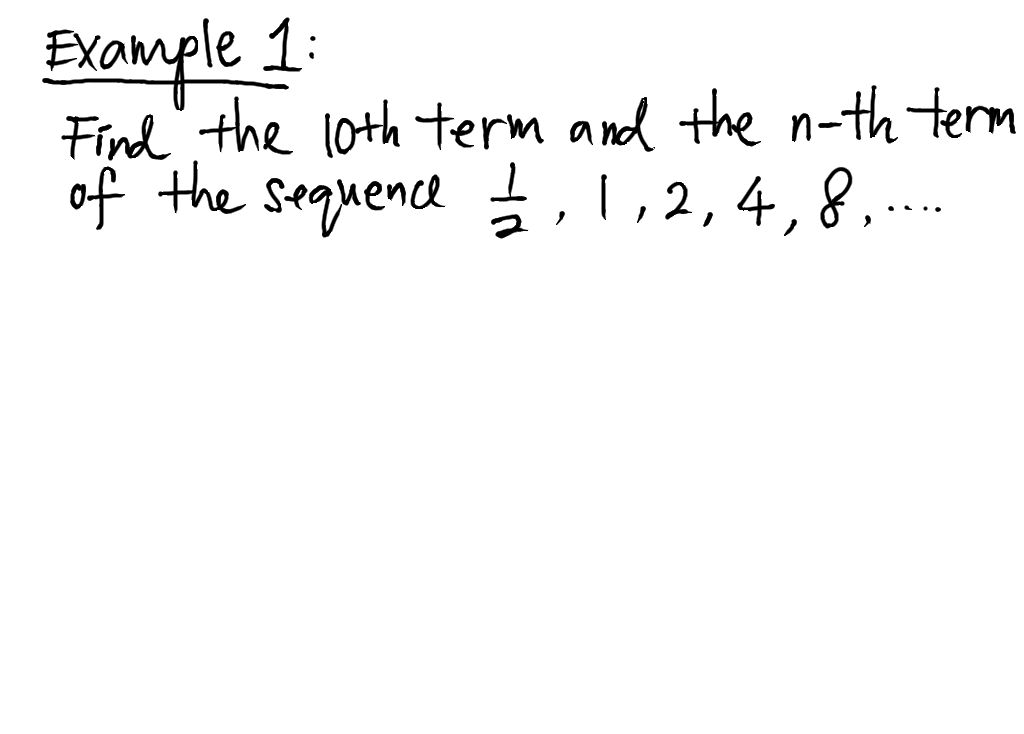 Example 1:
Find the 10th term and the n-th term
of the sequence 1/2, 1, 2, 4, 8, ....